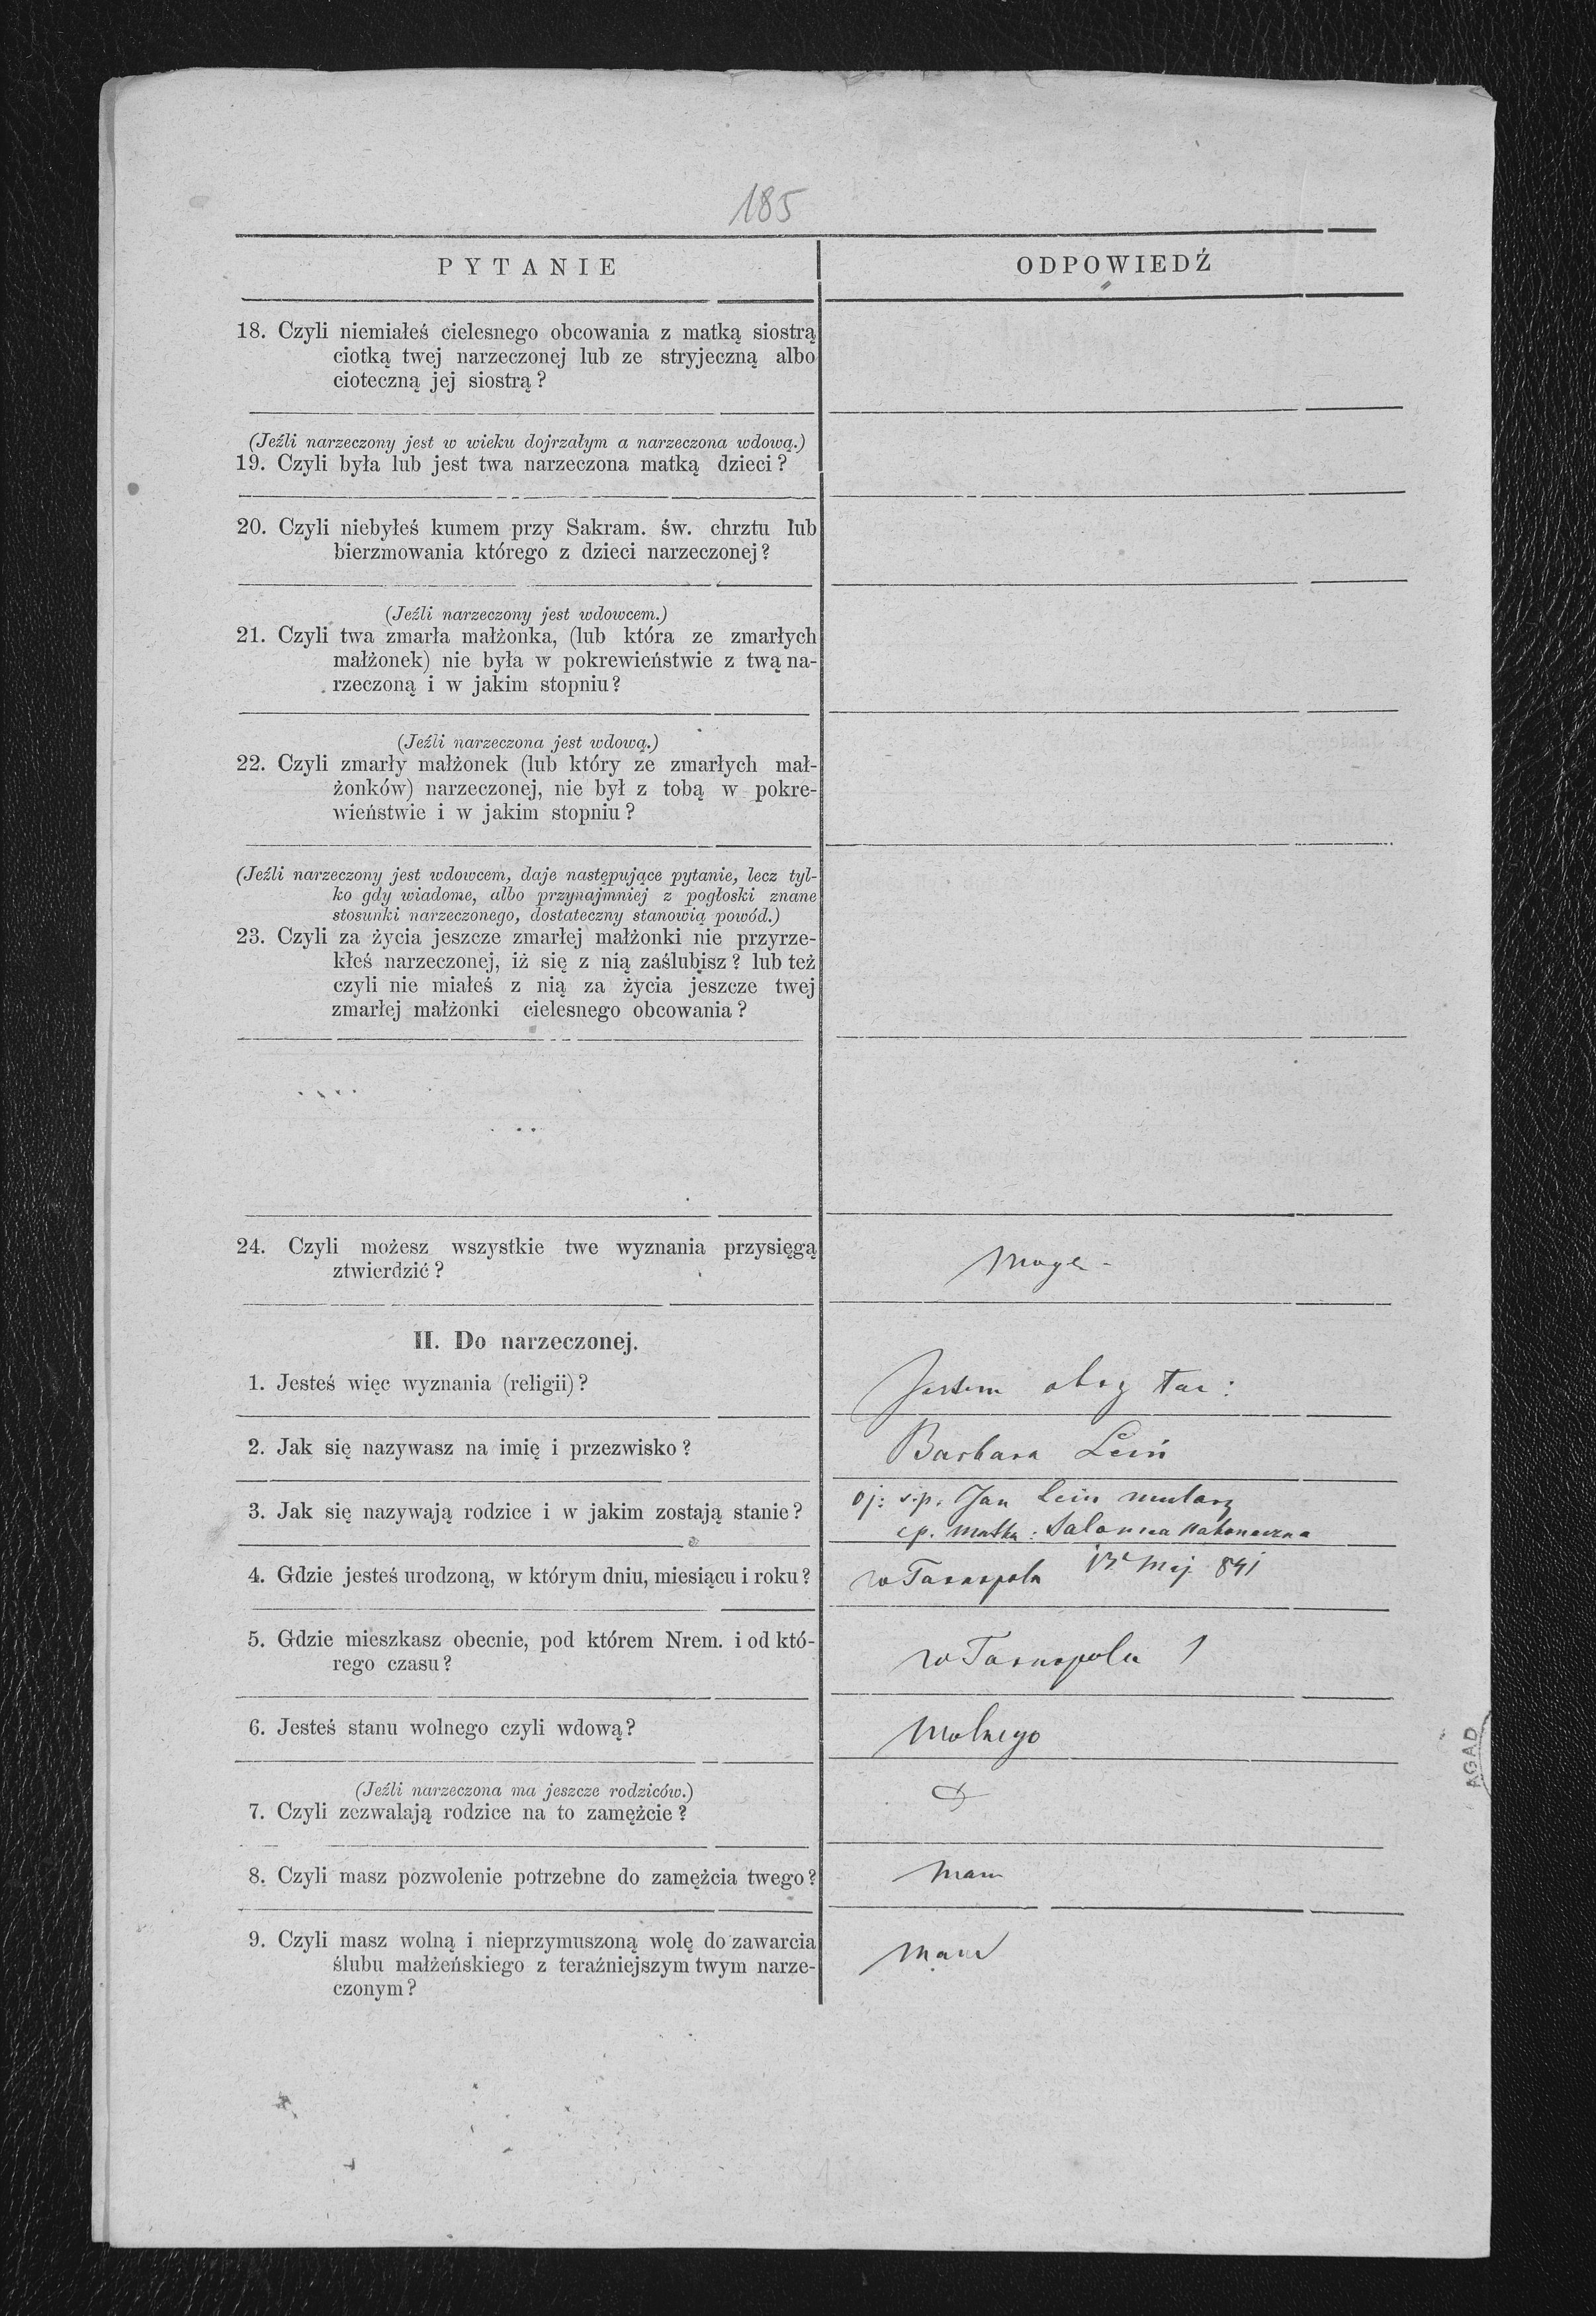 185
PYTANIE
ODPOWIEDŹ
18. Czyli niemiałeś cielesnego obcowania z matką siostrą
ciotką twej narzeczonej lub ze stryjeczną albo
cioteczną jej siostrą?
(Jeźli narzeczony jest w wieku dojrzałym a narzeczona wdową.)
19. Czyli była lub jest twa narzeczona matką dzieci?
20. Czyli niebyłeś kumem przy Sakram. św. chrztu lub
bierzmowania którego z dzieci narzeczonej?
(Jeźli narzeczony jest wdowcem.)
21. Czyli twa zmarła małżonka, (lub która ze zmarłych
małżonek) nie była w pokrewieństwie z twą na-
rzeczoną i w jakim stopniu?
(Jeźli narzeczona jest wdową.)
22. Czyli zmarły małżonek (lub który ze zmarłych mał-
żonków) narzeczonej, nie był z tobą w pokre-
wieństwie i w jakim stopniu?
(Jeźli narzeczony jest wdowcem, daje następujące pytanie, lecz tyl-
ko gdy wiadome, albo przynajmniej z pogłoski znane
stosunki narzeczonego, dostateczny stanowią powód.)
23. Czyli za życia jeszcze zmarłej małżonki nie przyrze-
kłeś narzeczonej, iż się z nią zaślubisz? lub też
czyli nie miałeś z nią za życia jeszcze twej
zmarłej małżonki cielesnego obcowania?
24. Czyli możesz wszystkie twe wyznania przysięgą
ztwierdzić?
Mogę -
II. Do narzeczonej.
1. Jesteś więc wyznania (religii)?
Jestem obrz łac:
2. Jak się nazywasz na imię i przezwisko?
Barbara Leiń
3. Jak się nazywają rodzice i w jakim zostają stanie?
oj: ś.p. Jan Lein mularz
ś.p. Matka: Salomea
4. Gdzie jesteś urodzoną, w którym dniu, miesiącu i roku?
w Tarnopolu Maj 841
5. Gdzie mieszkasz obecnie, pod którem Nrem. i od któ-
rego czasu?
w Tarnopolu 1
6. Jesteś stanu wolnego czyli wdową?
Wolnego
(Jeźli narzeczona ma jeszcze rodziców.)
7. Czyli zezwalają rodzice na to zamęźcie?
8. Czyli masz pozwolenie potrzebne do zamęźcia twego?
Mam
9. Czyli masz wolną i nieprzymuszoną wolę do zawarcia
ślubu małżeńskiego z teraźniejszym twym narze-
czonym?
Mam
AGAD